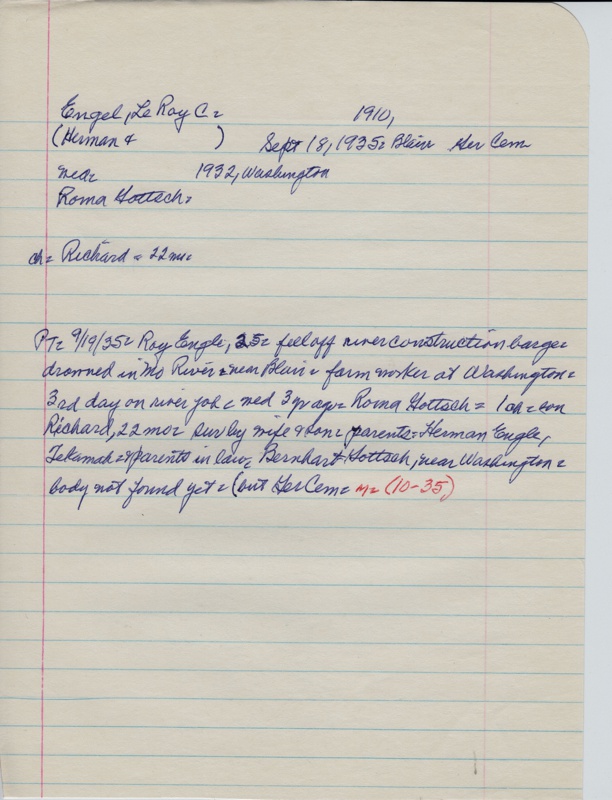 Engel, Le Roy C = 1910,
(Herman & ) Sept 18, 1935 = Blair Ger Cem
near 1932, Washington
Roma Gottsch =
ch = Richard = 22 mo =
PT = 9/19/35 = Roy Engle, 25 = fell off river construction barge =
drowned in Mo River = near Blair = farm worker at Washington =
3rd day on river job = wed 3 yr ago = Roma Gottsch = 1 ch = son
Richard, 22 mo = surby wife & son = parents = Herman Engle,
Tekamah = & parents in law = Bernhart Gottsch, near Washington =
body not found yet = (but Ger Cem = m = (10-35)